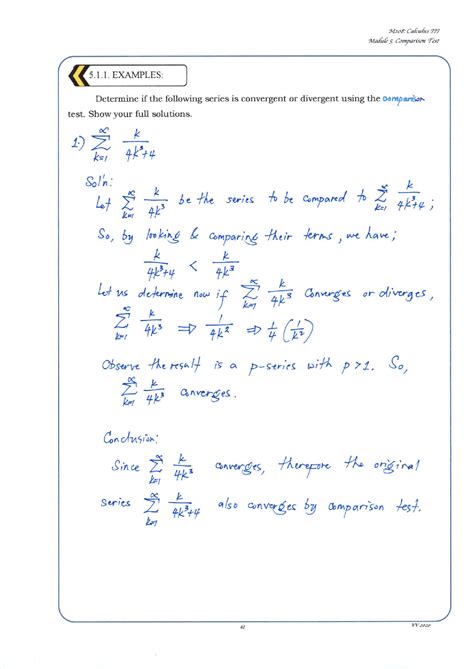 M108: Calculus III
Module 5: Comparison Test
5.1.1. EXAMPLES:
Determine if the following series is convergent or divergent using the comparison
test. Show your full solutions.
1.) ∞ Σ k=1 k/4k³+4
Sol'n:
Let ∞ Σ k=1 k/4k³ be the series to be compared to ∞ Σ k=1 k/4k³+4 ;
So, by looking & comparing their terms, we have;
k/4k³+4 < k/4k³
Let us determine now if ∞ Σ k=1 k/4k³ converges or diverges,
∞ Σ k=1 k/4k³ ⇒ 1/4k² ⇒ 1/4 (1/k²)
Observe the result is a p-series with p>1. So,
∞ Σ k=1 k/4k³ converges.
Conclusion:
Since ∞ Σ k=1 k/4k³ converges, therefore the original
series ∞ Σ k=1 k/4k³+4 also converges by comparison test.
41
VV 2020